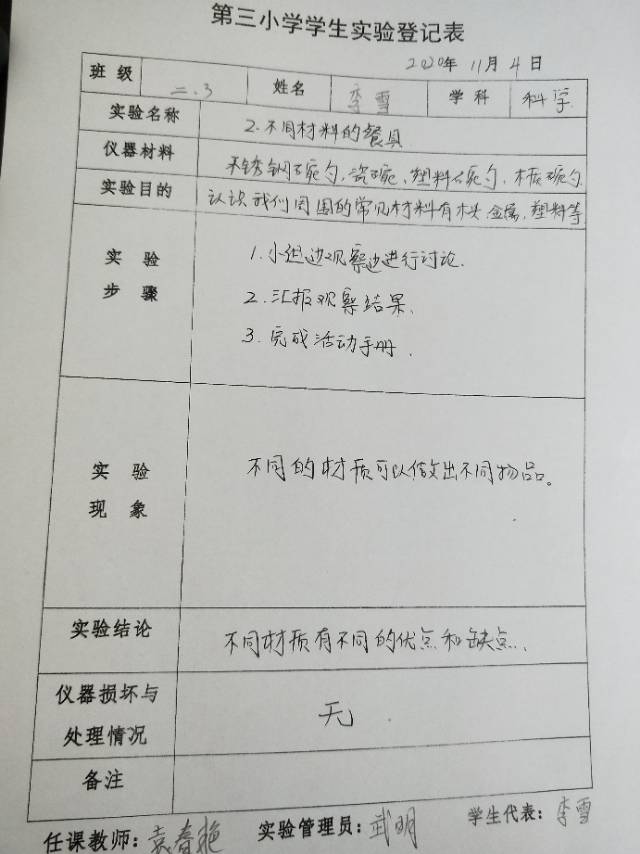 第三小学学生实验登记表
2020年 11月 4日
班 级 二.3 姓名 李雪 学 科 科学
实验名称 2.不同材料的餐具
仪器材料 不锈钢碗勺、瓷碗、塑料碗勺、木碗勺
实验目的 认识我们周围的常见材料有木头、金属、塑料等
实 验
步 骤
1.小组边观察边进行讨论.
2.汇报观察结果.
3.完成活动手册.
实 验
现 象
不同的材质可以做出不同物品。
实验结论 不同材质有不同的优点和缺点.
仪器损坏与
处理情况
无
备注
任课教师：袁春艳 实验管理员：武明 学生代表：李雪